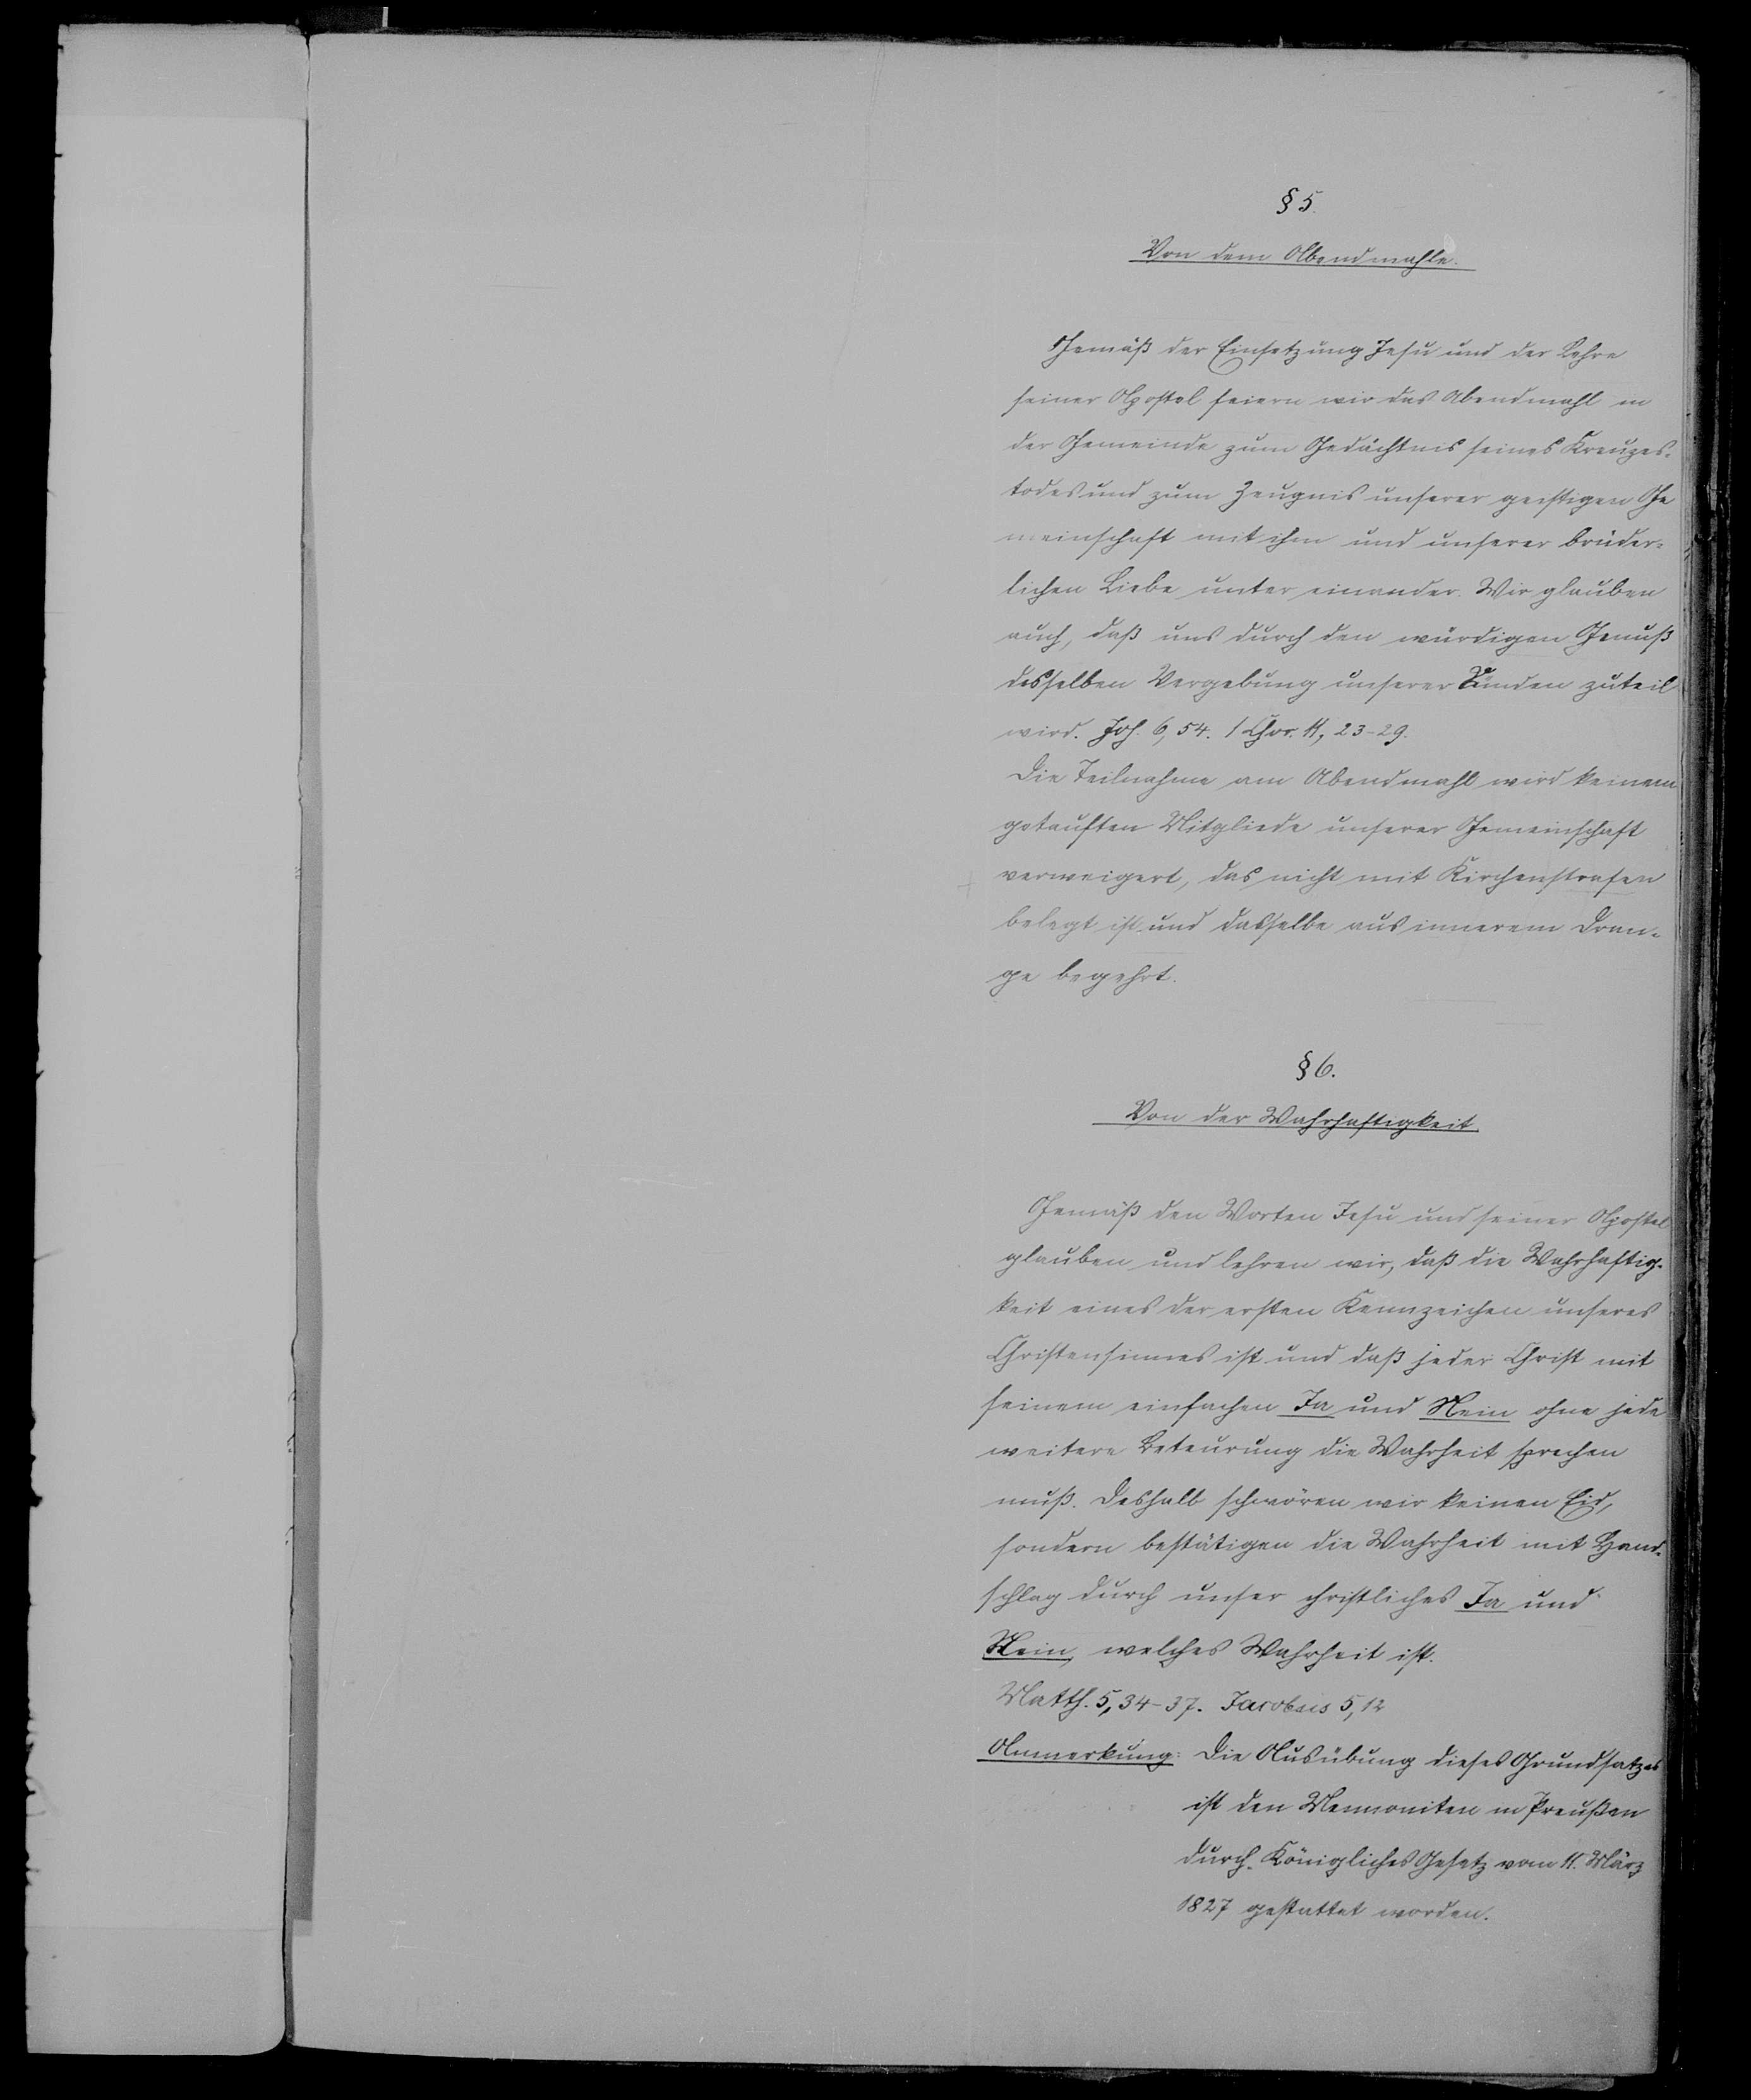 § 5.
Von dem Abendmahle.
Gemäß der Einsetzung Jesu und der Lehre
seiner Apostel feiern wir das Abendmahl in
der Gemeinde zum Gedächtnis seines Kreuzes-
todes und zum Zeugnis unserer geistigen Ge
meinschaft mit ihm und unserer brüder-
lichen Liebe unter einander. Wir glauben
auch, daß uns durch den würdigen Genuß
desselben Vergebung unserer Sünden zuteil
wird. Joh. 6, 54. 1 Chor. 11, 23-29.
Die Teilnahme am Abendmahl wird keinem
getauften Mitgliede unserer Gemeinschaft
verweigert, das nicht mit Kirchenstrafen
belegt ist und dasselbe aus innerem Dran-
ge begehrt.
§ 6.
Von der Wahrhaftigkeit.
Gemäß den Worten Jesu und seiner Apostel
glauben und lehren wir, daß die Wahrhaftig-
keit eines der ersten Kennzeichen unseres
Christensinnes ist und daß jeder Christ mit
seinem einfachen Ja und Nein ohne jede
weitere Beteurung die Wahrheit sprechen
muß. Deshalb schwören wir keinen Eid,
sondern bestätigen die Wahrheit mit Hand-
schlag durch unser christliches Ja und
Nein, welches Wahrheit ist.
Matth. 5, 34-37. Jacobus 5, 12
Anmerkung: Die Ausübung dieses Grundsatzes
ist den Mennoniten in Preußen
durch Königliches Gesetz vom 11. März
1827 gestattet worden.